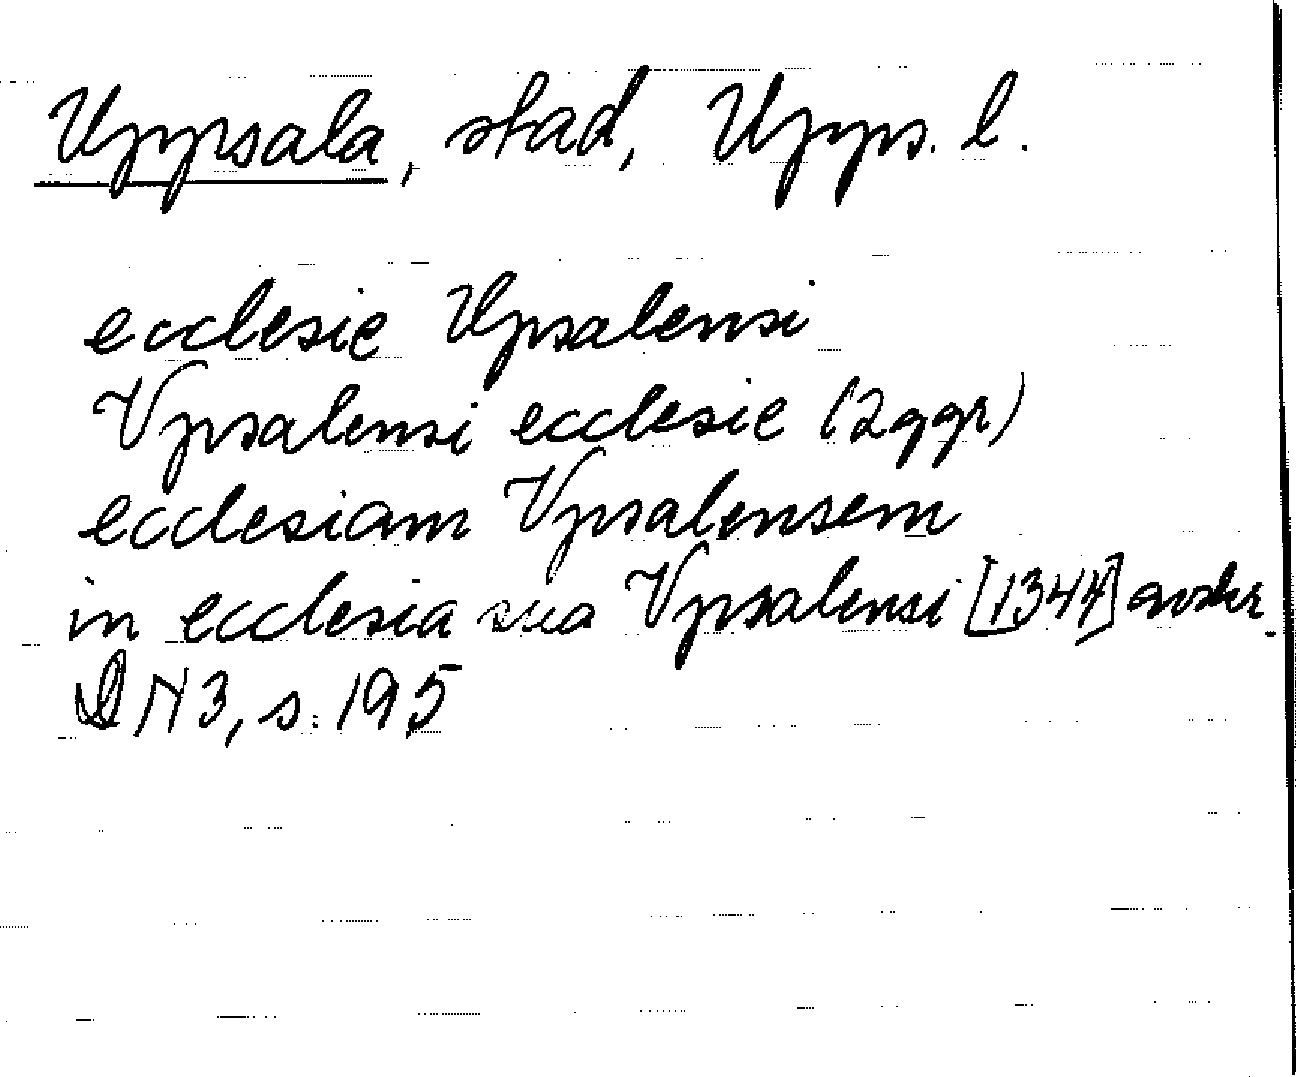 Uppsala, stad, Upps. l.
ecclesie Upsalensi
Vpsalensi ecclesie (2 ggr)
ecclesiam Vpsalensem
in ecclesia sua Vpsalensi [1344] avskr.
DN 3, s. 195